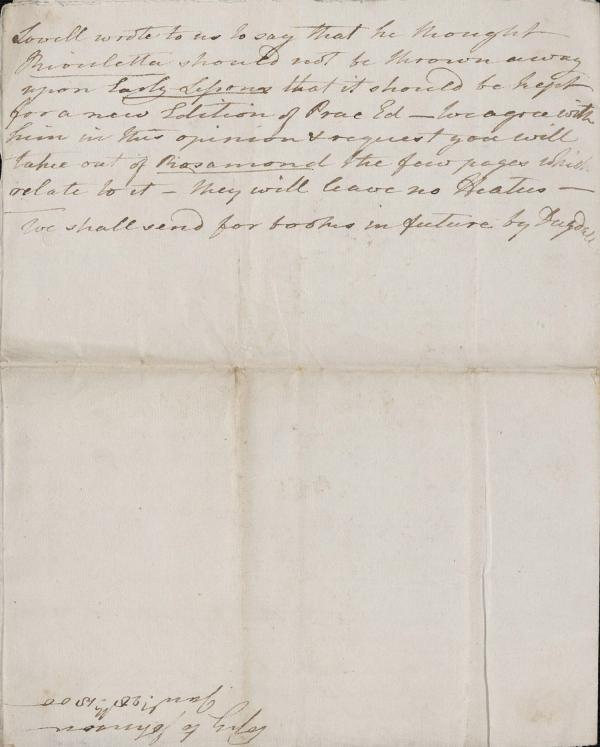 Lovell wrote to us to say that he thought
Rivuletta should not be thrown away
upon Early Lessons that it should be kept
for a new Edition of Prac Ed — We agree with
him in this opinion & request you will
take out of Rosamond the few pages which
relate to it — They will leave no Hiatus —
We shall send for books in future by Dugdale
Copy to Johnson
Jan